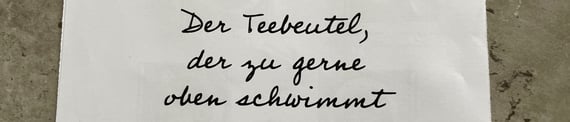 Der Teebeutel,
der zu gerne
oben schwimmt